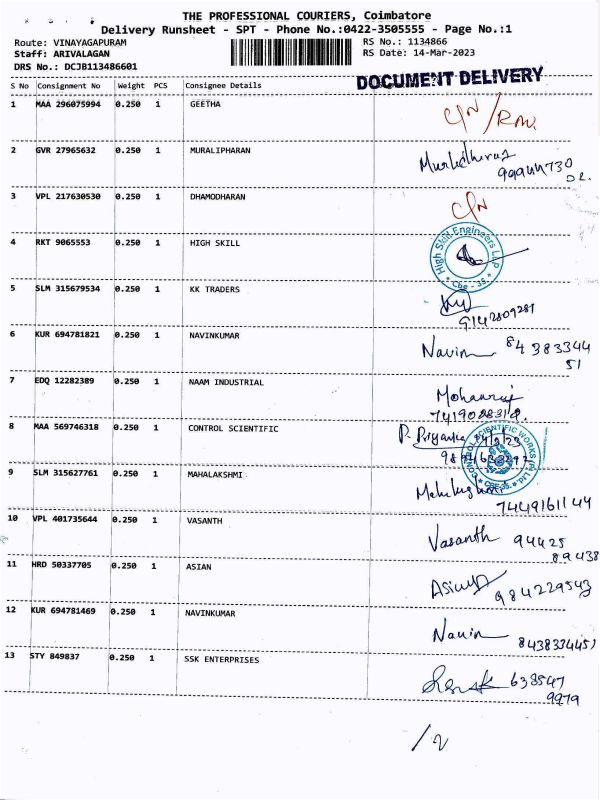 THE PROFESSIONAL COURIERS, Coimbatore
Delivery Runsheet - SPT - Phone No.:0422-3505555 - Page No.:1
Route: VINAYAGAPURAM
Staff: ARIVALAGAN
DRS No.: DCJB113486601
RS No.: 1134866
RS Date: 14-Mar-2023
DOCUMENT DELIVERY
S No Consignment No Weight PCS Consignee Details
1 MAA 296075994 0.250 1 GEETHA
2 GVR 27965632 0.250 1 MURALIPHARAN
3 VPL 217630530 0.250 1 DHAMODHARAN
4 RKT 9065553 0.250 1 HIGH SKILL
High Skill Engineers LLP
* Cbe - 35. *
5 SLM 315679534 0.250 1 KK TRADERS
9142809281
6 KUR 694781821 0.250 1 NAVINKUMAR
Navin 84 383344
51
7 EDQ 12282389 0.250 1 NAAM INDUSTRIAL
Mohanraj
8 MAA 569746318 0.250 1 CONTROL SCIENTIFIC
P. Priyanka 14/3/23
9 SLM 315627761 0.250 1 MAHALAKSHMI
7449161144
10 VPL 401735644 0.250 1 VASANTH
Vasanth 94425
89438
11 HRD 50337705 0.250 1 ASIAN
984229543
12 KUR 694781469 0.250 1 NAVINKUMAR
Navin 8438334451
13 STY 849837 0.250 1 SSK ENTERPRISES
638547
9979
/2